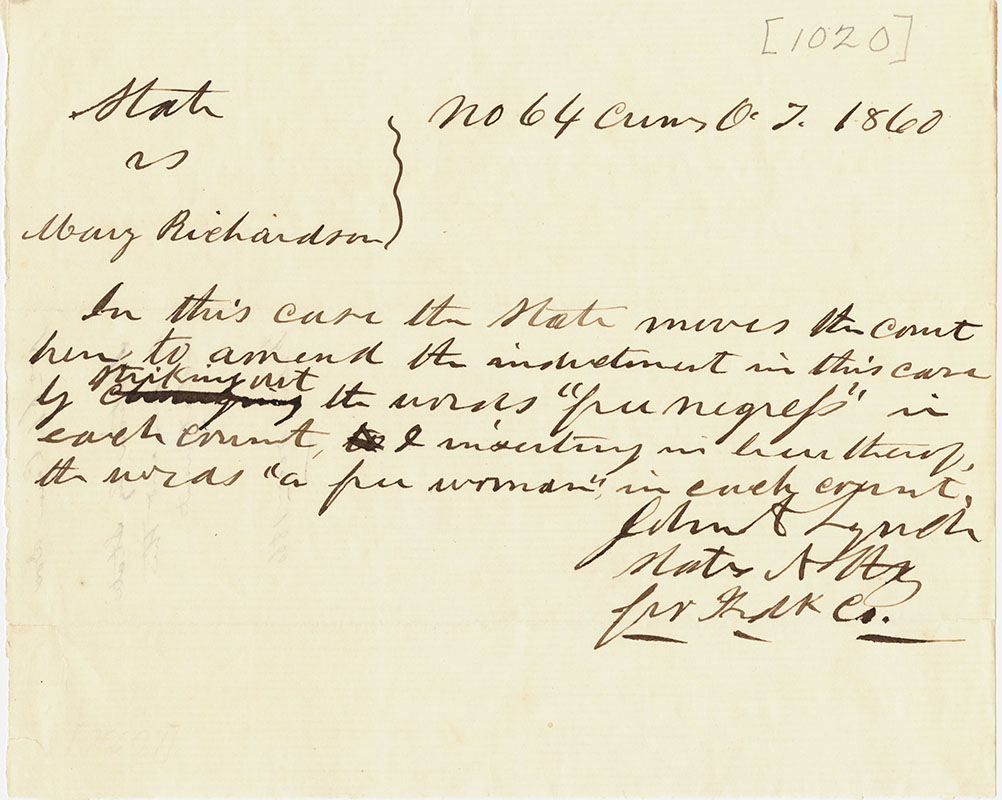 [1020]
State
vs
Mary Richardson
No 64 Crims O. T. 1860
In this case the State moves the court
here to amend the indictment in this case
by striking out the words "free negress" in
each count, & inserting in lieu thereof,
the words "a free woman", in each count.
John A Lynch
States Atty
for Fredk Co.